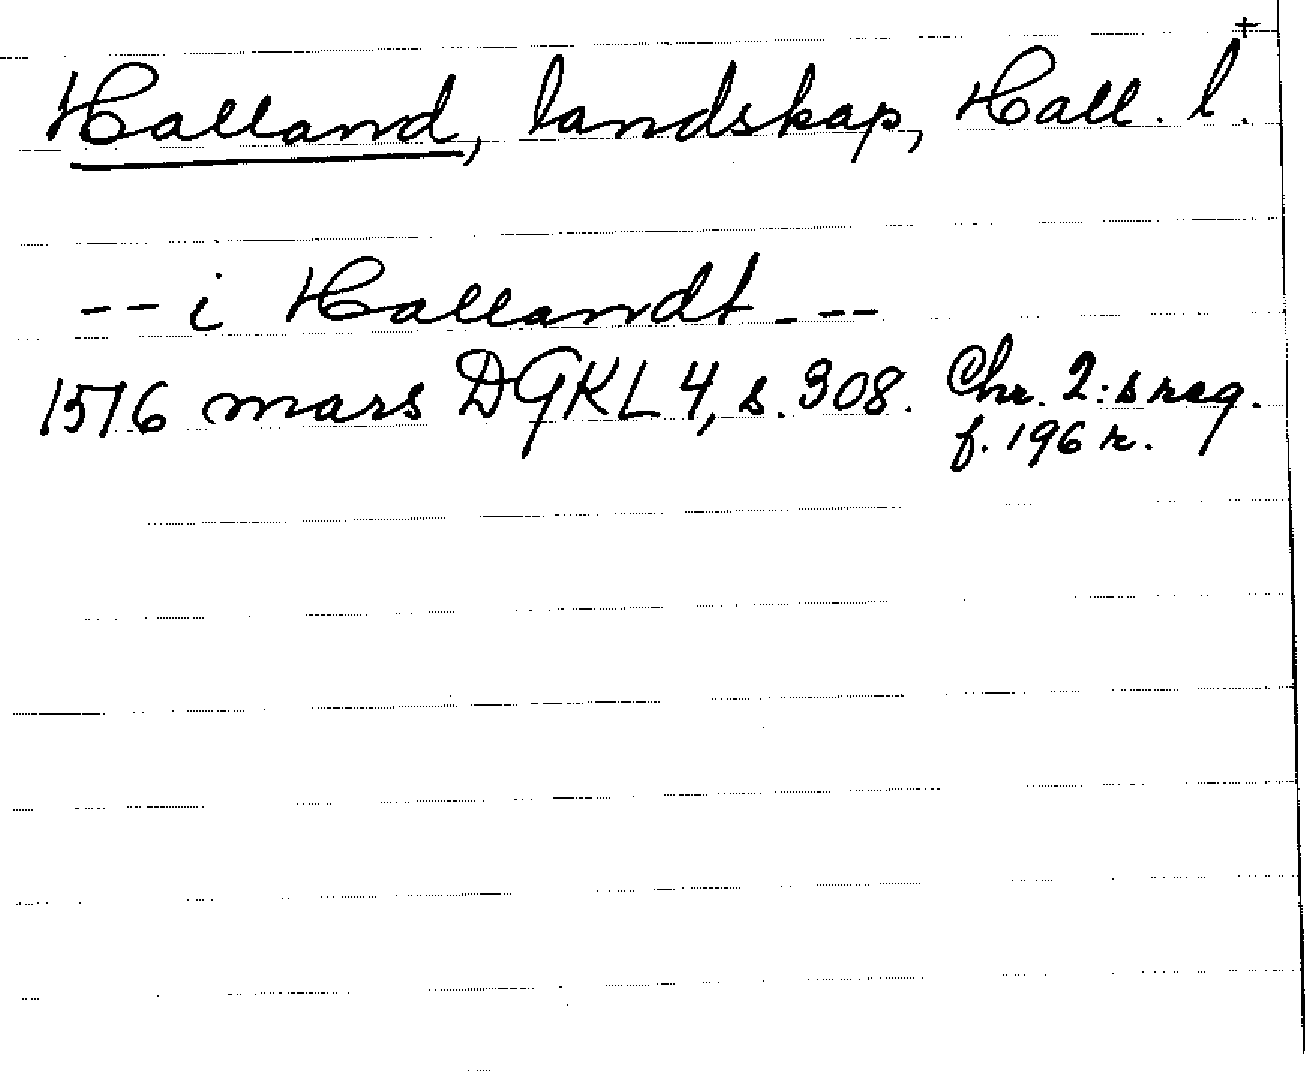 +
Halland, landskap, Hall. l.
-- i Hallandt ---
1516 mars DGKL 4, s. 308. Chr. 2:s reg.
f. 196 r.